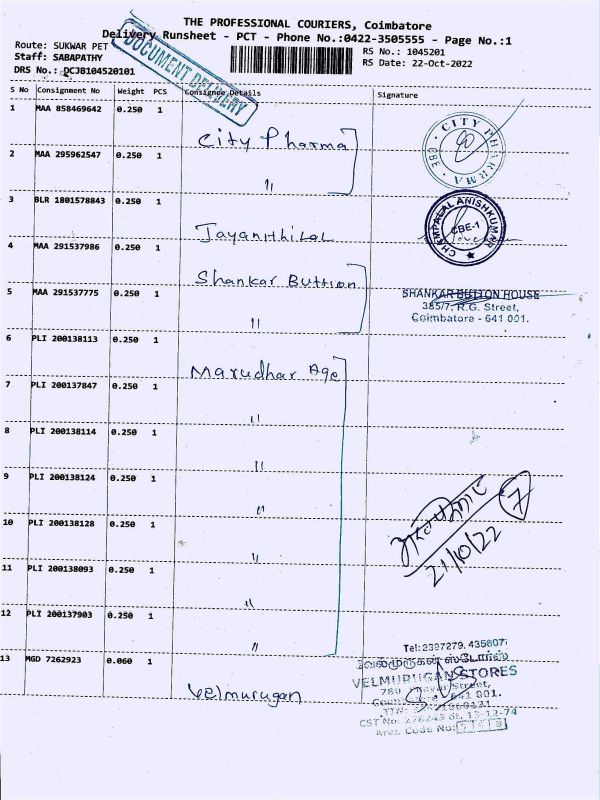 THE PROFESSIONAL COURIERS, Coimbatore
Delivery Runsheet - PCT - Phone No.:0422-3505555 - Page No.:1
Route: SUKWAR PET
RS No.: 1045201
Staff: SABAPATHY
RS Date: 22-Oct-2022
DRS No.: DCJB104520101
DOCUMENT DELIVERY
S No Consignment No Weight PCS Consignee Details Signature
1 MAA 858469642 0.250 1 City Pharma
CITY PHARMA CBE
2 MAA 295962547 0.250 1 "
3 BLR 1801578843 0.250 1 Jayanthilal
CHAMPALAL ANISHKUMAR CBE-1
4 MAA 291537986 0.250 1 Shankar Buttion
5 MAA 291537775 0.250 1 "
SHANKAR BUTTON HOUSE
385/7, R.G. Street,
Coimbatore - 641 001.
6 PLI 200138113 0.250 1 Marudhar Age
7 PLI 200137847 0.250 1 "
8 PLI 200138114 0.250 1 "
9 PLI 200138124 0.250 1 "
7
10 PLI 200138128 0.250 1 "
21/10/22
11 PLI 200138093 0.250 1 "
12 PLI 200137903 0.250 1 "
13 MGD 7262923 0.060 1 Velmurugan
Tel: 2397279, 435607
வேல்முருகன் ஸ்டோர்ஸ்
VELMURUGAN STORES
Street,
641 001.
CST No: 13-12-74
Area Code No: